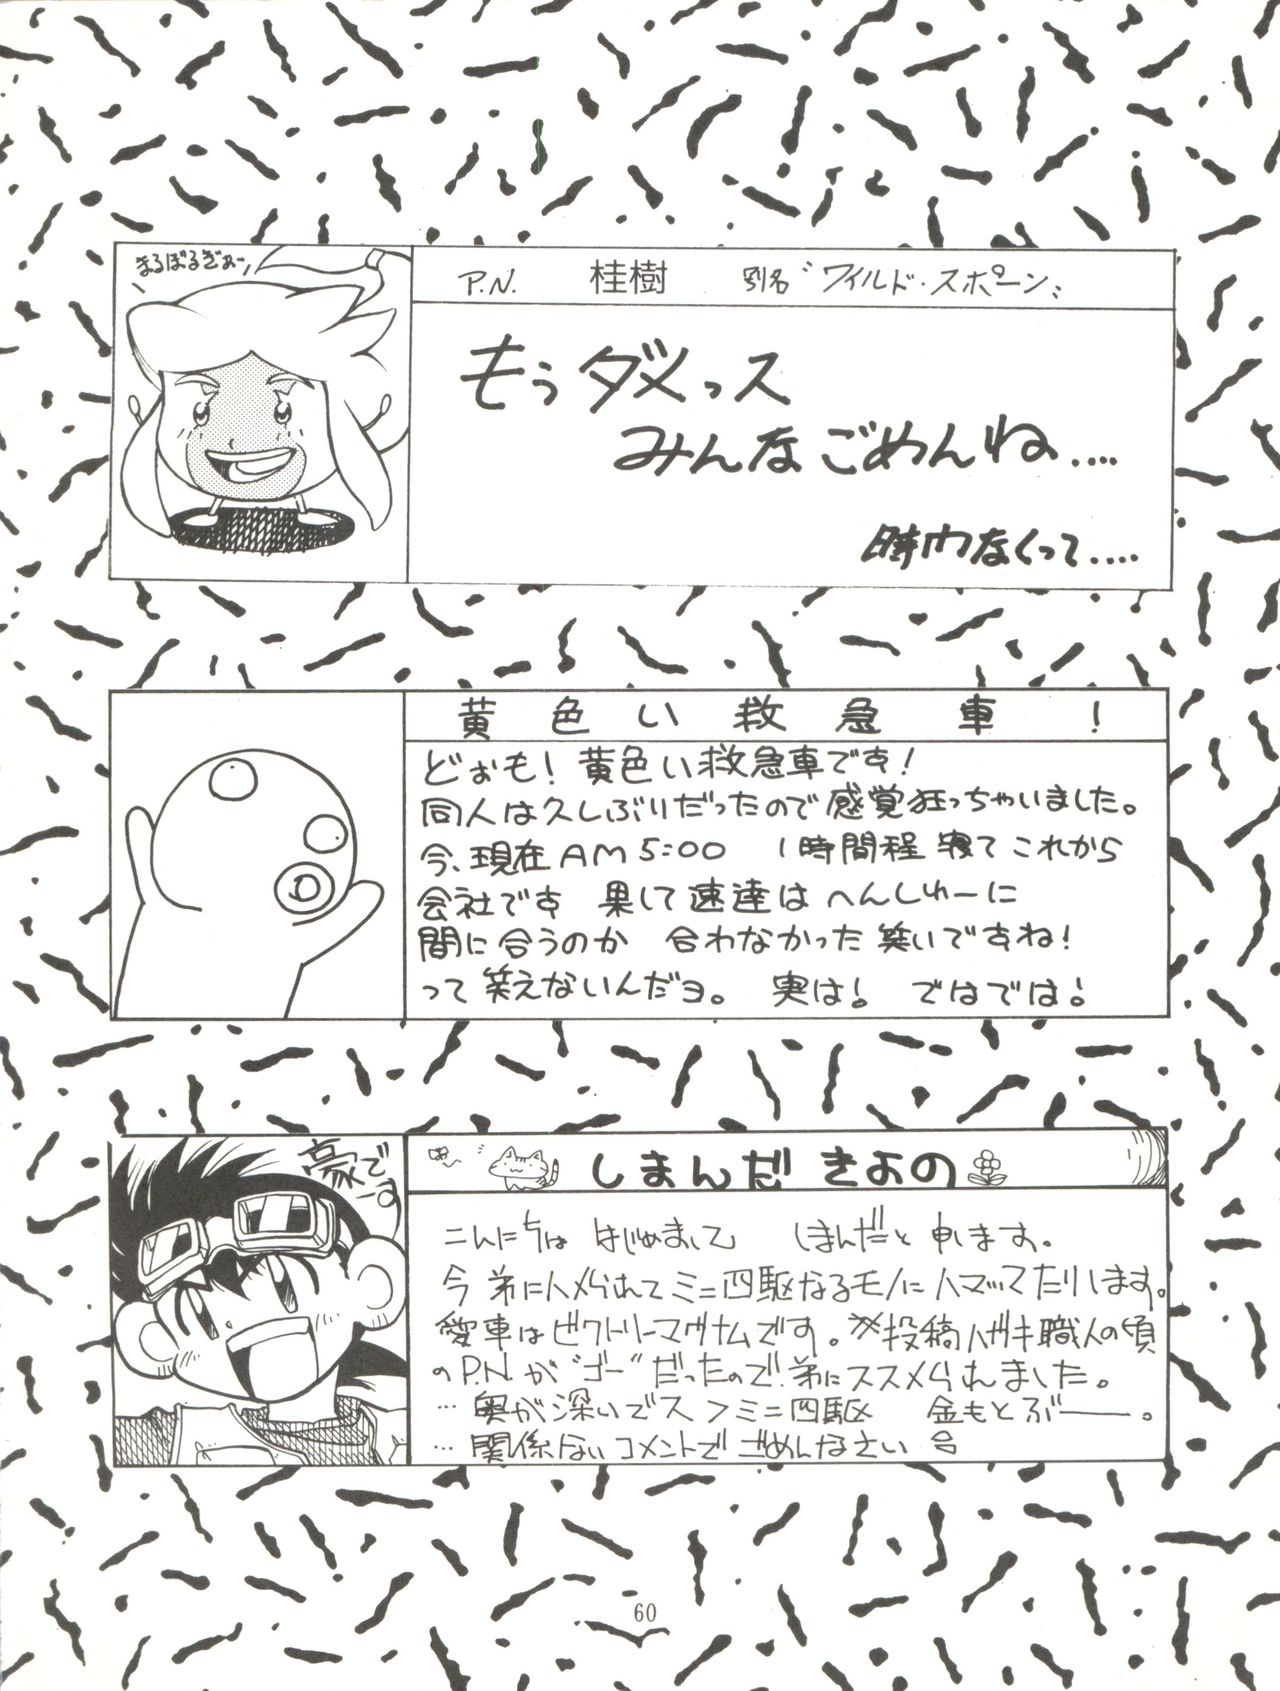 まるぼるぎぁーッ
P.N. 桂樹 別名〝ワイルド・スポーン〟
もうダメっス
みんなごめんね....
時間なくって....
黄色い救急車!
どぉも!黄色い救急車です!
同人は久しぶりだったので感覚狂っちゃいました。
今、現在AM5:00 1時間程寝てこれから
会社です 果して速達はへんしゅーに
間に合うのか 合わなかった笑いですね!
って笑えないんだヨ。 実は! ではでは!
豪でーす
しまんだきよの
こんにちは はじめまして しまんだと申します。
今弟にハメられてミニ四駆なるモノにハマッてたりします。
愛車はビクトリーマグナムです。※投稿ハガキ職人の頃
のP.N.が〝ゴー〟だったので弟にススメられました。
…奥が深いでスフミニ四駆 金もとぶーー。
…関係ないコメントでごめんなさい
60